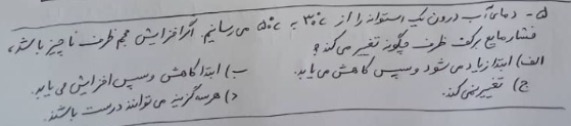 ۵- دمای آب درون یک استوانه را از ۳۰°c به ۵۰°c می رسانیم. اگر افزایش حجم ظرف ناچیز باشد،
فشار مایع بر کف ظرف چگونه تغییر می کند؟
الف) ابتدا زیاد می شود و سپس کاهش می یابد. ب) ابتدا کاهش و سپس افزایش می یابد.
ج) تغییر نمی کند. د) هر سه گزینه می توانند درست باشند.